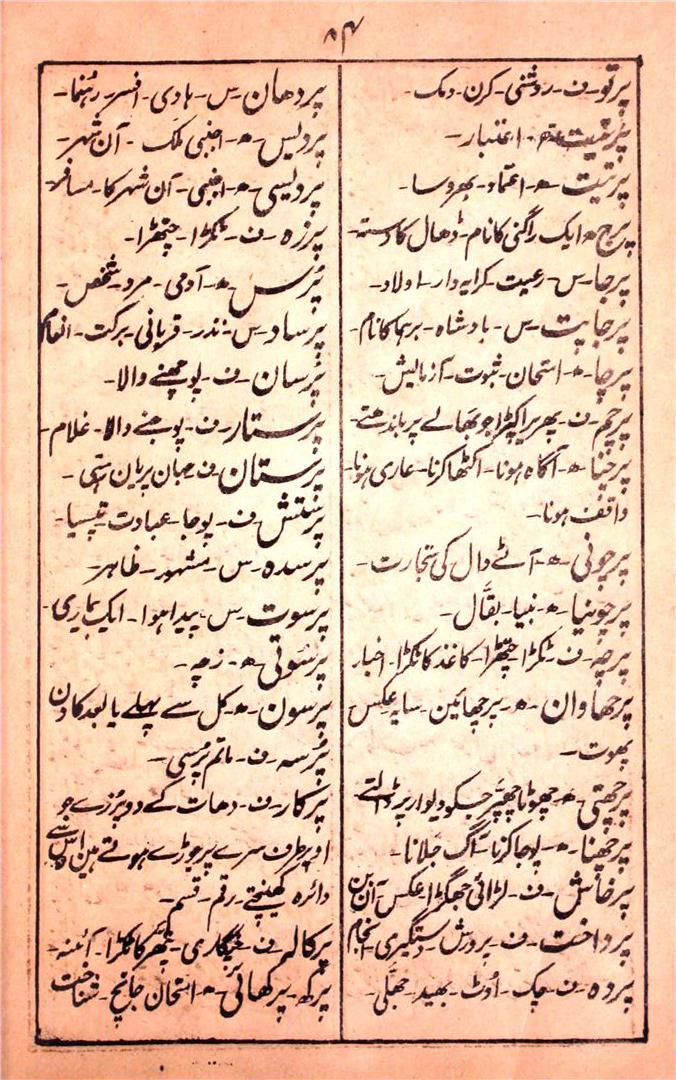 ۸۴
پرتو۔ف۔روشنی۔کرن۔دمک۔
پرتیت۔ھ۔اعتبار۔
پرتیت۔ھ۔اعتماد۔بھروسا۔
پرج۔ھ۔ایک راگنی کا نام۔ڈھال کا دستہ۔
پرجا۔س۔رعیت۔کرایہ دار۔اولاد۔
پرجاپت۔س۔بادشاہ۔برہما کا نام۔
پرچا۔ھ۔امتحان۔ثبوت۔آزمایش۔
پرچم۔ف۔پھریرا کپڑا جو بھالے پر باندھتے۔
پرچنا۔ھ۔آگاہ ہونا۔اکٹھا کرنا۔عاری ہونا۔
واقف ہونا۔
پرچونی۔ھ۔آٹے دال کی تجارت۔
پرچونیا۔ھ۔بنیا۔بقّال۔
پرچہ۔ف۔ٹکڑا۔چتھڑا۔کاغذ کا ٹکڑا۔اخبار
پرچھاوان۔ھ۔پرچھائین۔سایہ عکس
بھوت۔
پرچھتی۔ھ۔چھوٹا چھپّر جسکو دیوار پر ڈالتے
پرچھنا۔ھ۔پوجا کرنا۔آگ جلانا۔
پرخاش۔ف۔لڑائی جھگڑا عکس آن بن
پرداخت۔ف۔پرورش۔دستگیری۔انجام
پردہ۔ف۔چک۔اوٹ۔بھید۔جھلّی۔
پردھان۔س۔ہادی۔افسر۔رہنما۔
پردیس۔ھ۔اجنبی ملک۔آن شہر۔
پردیسی۔ھ۔اجنبی۔آن شہر کا۔مسافر۔
پرزہ۔ف۔ٹکڑا۔چتھڑا۔
پُرس۔ھ۔آدمی۔مرد۔شخص۔
پرساد۔س۔نذر۔قربانی۔برکت۔انعام
پُرسان۔ف۔پوچھنے والا۔
پرستار۔ف۔پوجنے والا۔غلام۔
پرستان۔ف۔جہان پریان رہتی۔
پرستش۔ف۔پوجا۔عبادت۔تپسیا۔
پرسدہ۔س۔مشہور۔ظاہر۔
پرسوت۔س۔پیدا ہوا۔ایک بیماری۔
پرسُوتی۔ھ۔زچہ۔
پرسون۔ھ۔کل سے پہلے یا بعد کا دن
پُرسہ۔ف۔ماتم پُرسی۔
پرکار۔ف۔دھات کے دو پُرزے جو
اوپر طرف سرے پر جوڑے ہوتے ہین اس سے
دائرہ کھینچتے۔رقم۔قسم۔
پرکالہ۔ف۔چنگاری۔پتھر کا ٹکڑا۔آئینہ۔
پرکھ۔پرکھائی۔ھ۔امتحان جانچ۔شناخت